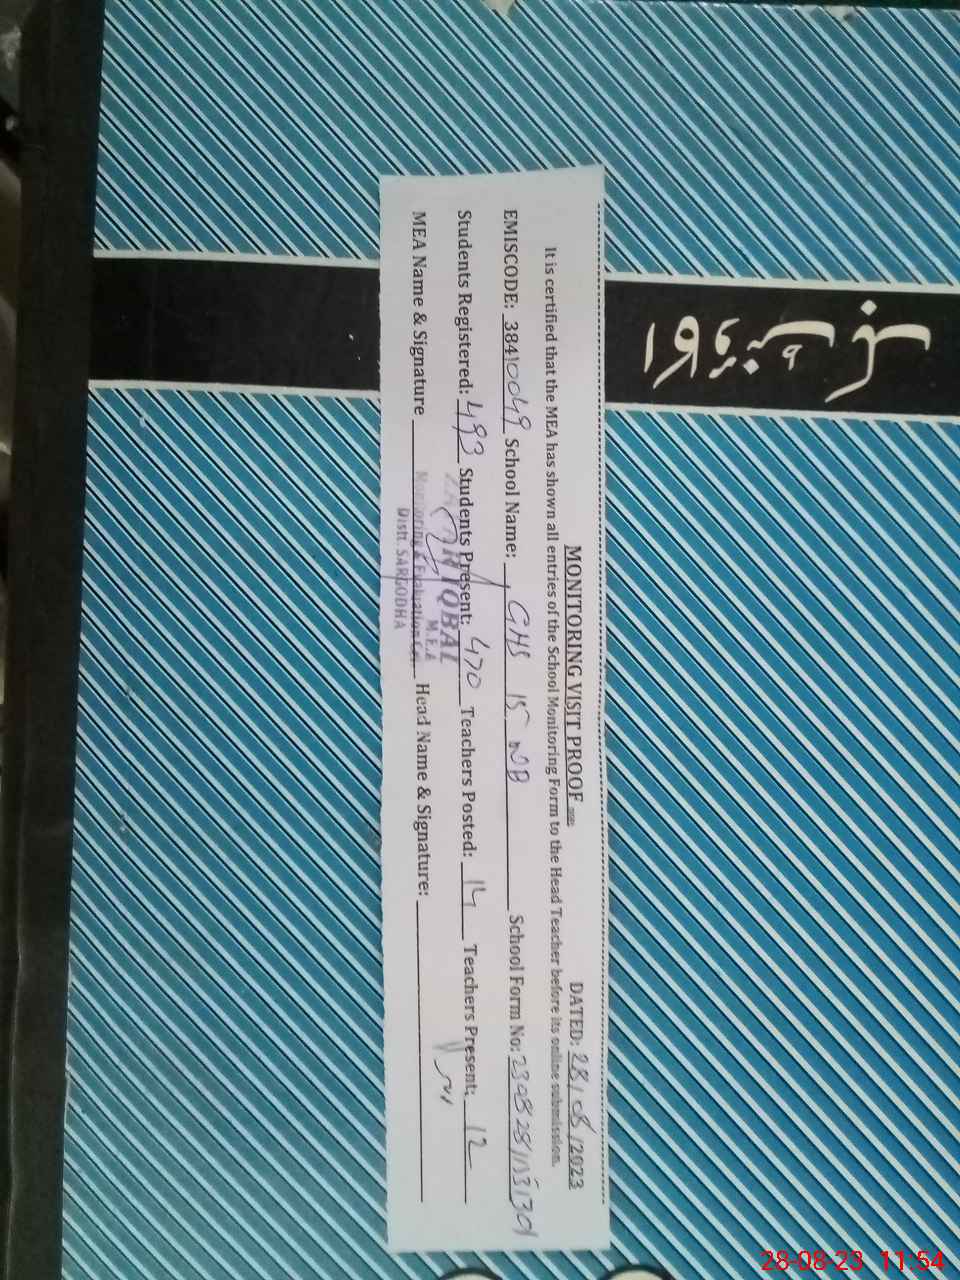 MONITORING VISIT PROOF DATED: 28/08/2023
It is certified that the MEA has shown all entries of the School Monitoring Form to the Head Teacher before its online submission.
EMISCODE: 38410049 School Name: GHS 15 NB School Form No:
Students Registered: 493 Students Present: 470 Teachers Posted: 14 Teachers Present: 12
MEA Name & Signature Head Name & Signature:
IQBAL
M.E.A
Monitoring & Evaluation
Distt. SARGODHA
28-08-23 11:54